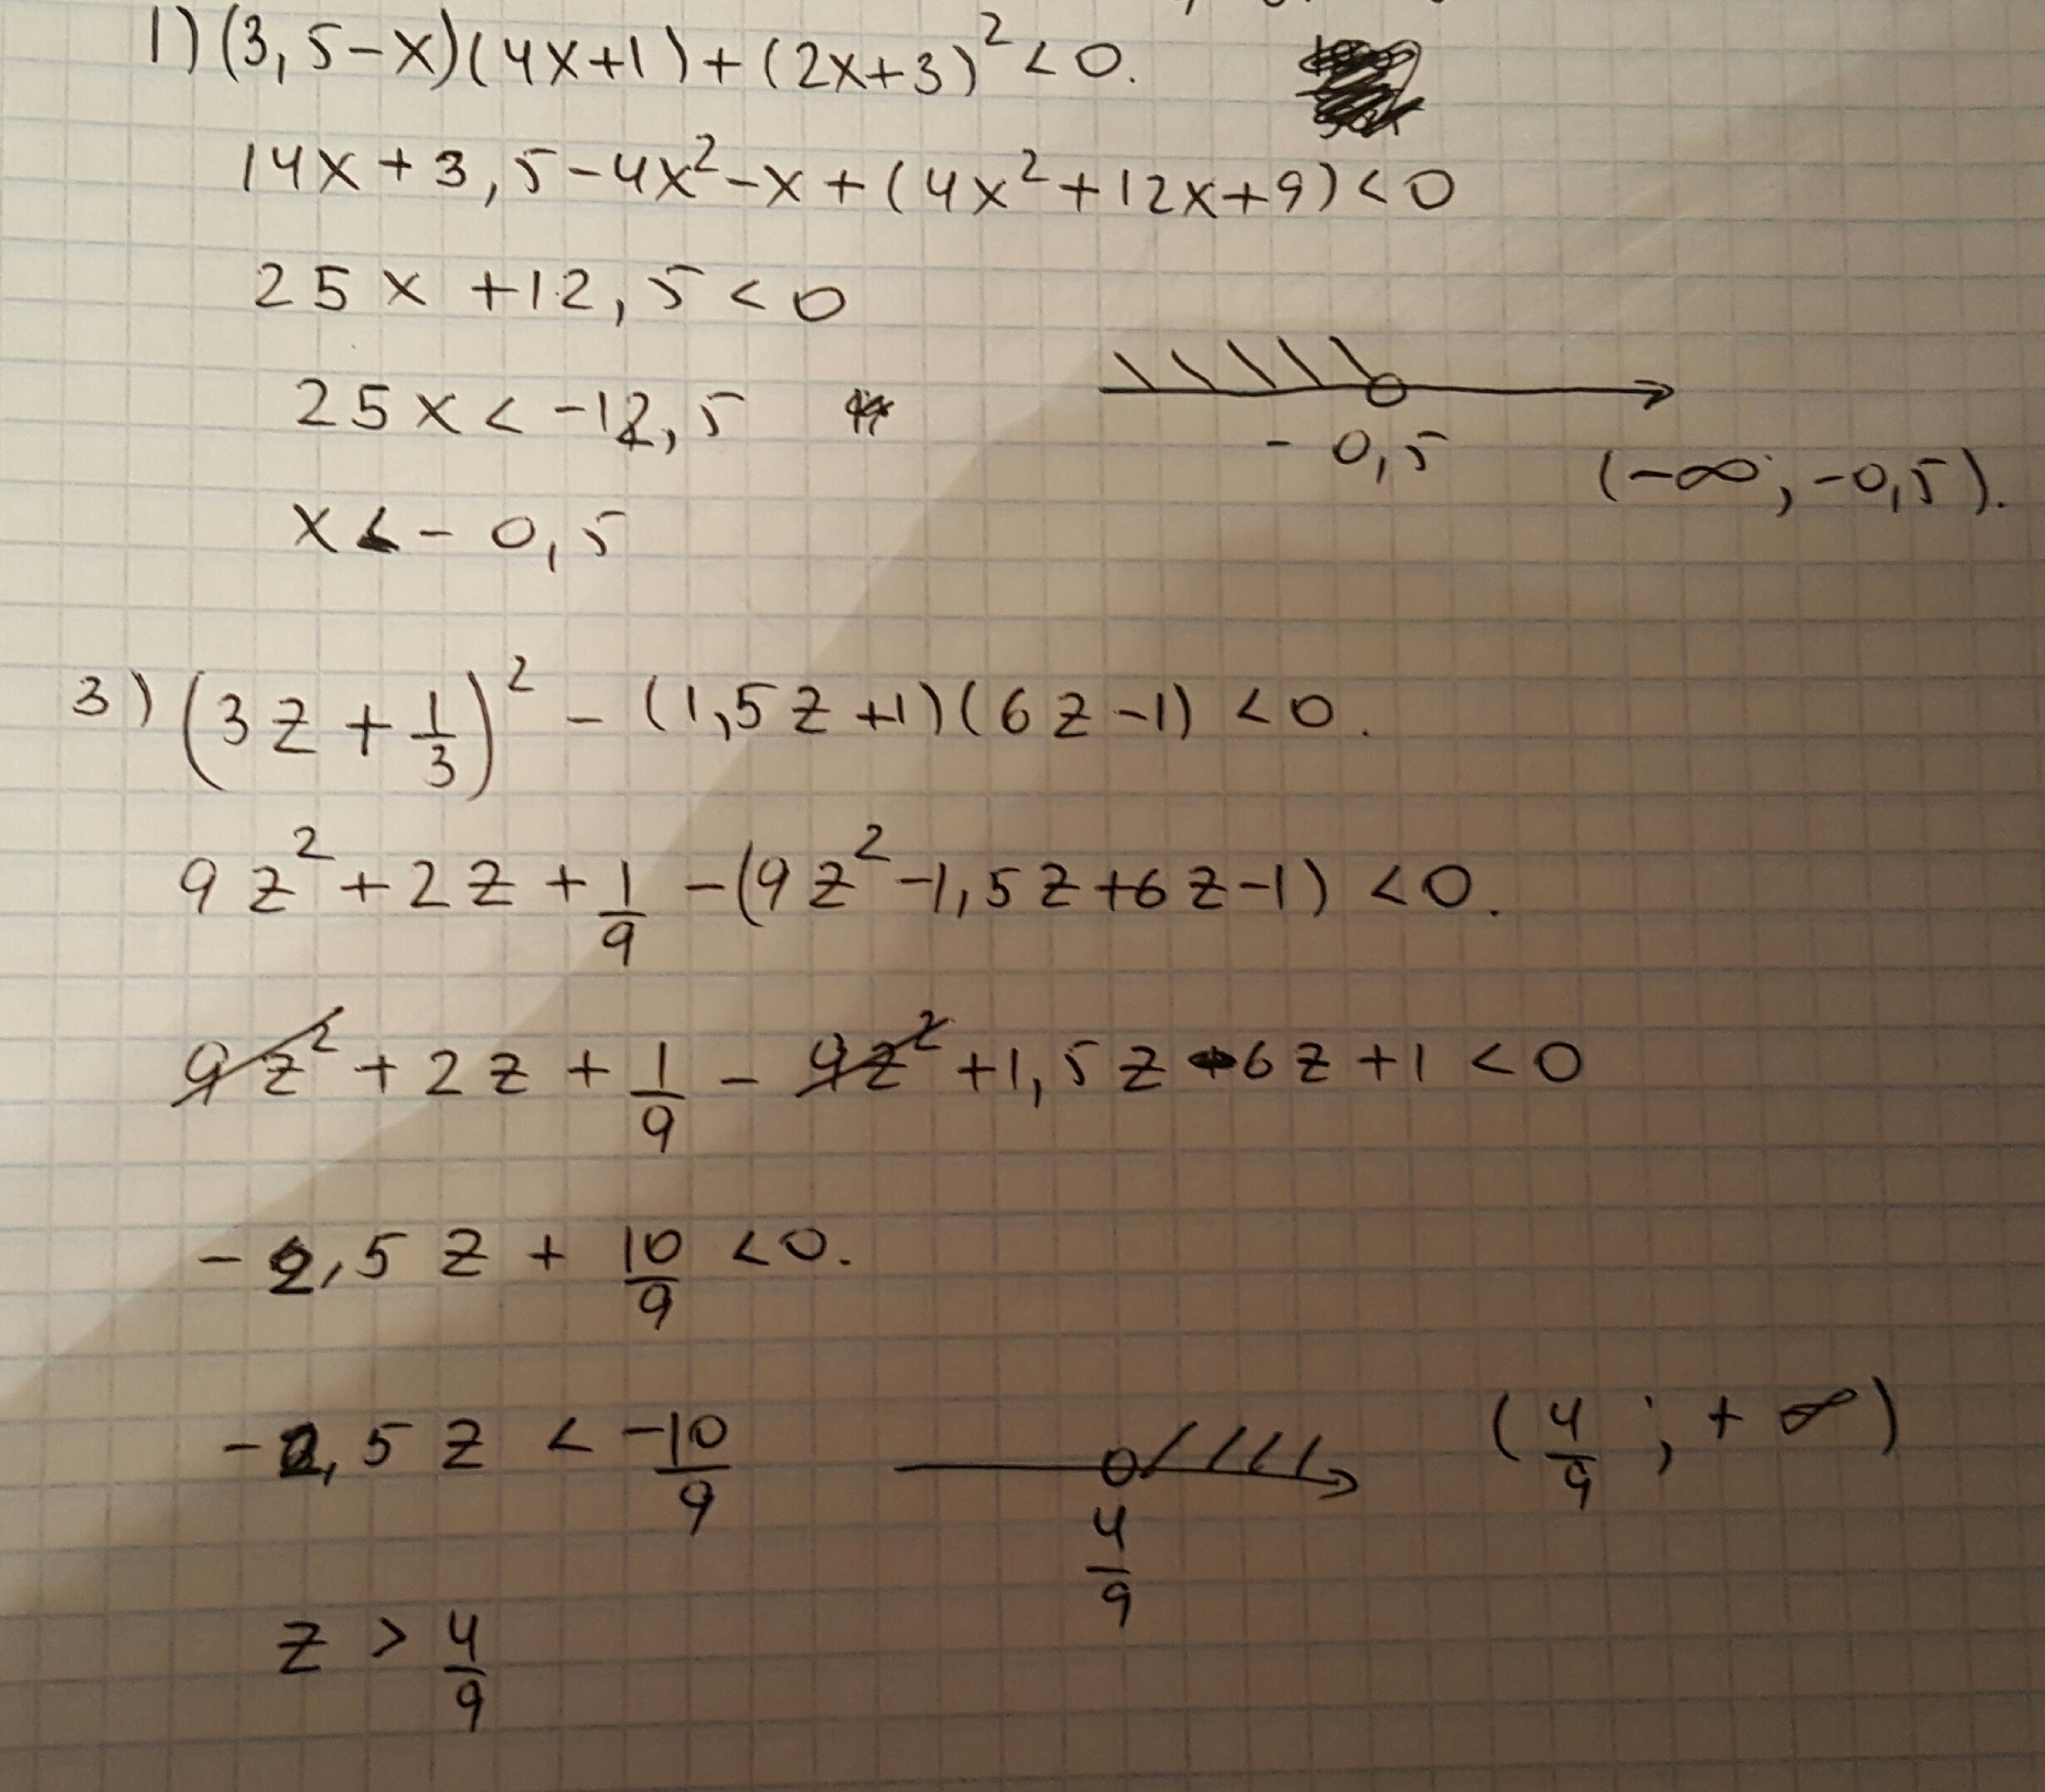 1) (3,5-x)(4x+1)+(2x+3)² <0.
14x+3,5-4x²-x+(4x²+12x+9)<0
25x +12,5<0
25x< -12,5
- 0,5
(-∞; -0,5).
x< - 0,5
3) (3z + 1/3)² - (1,5z+1)(6z-1) <0.
9z² + 2z + 1/9 -(9z² -1,5z+6z-1) <0.
9z² + 2z + 1/9 - 9z² +1,5z -6z+1 <0
- 2,5z + 10/9 <0.
-2,5z < -10/9
4/9
(4/9; +∞)
z > 4/9